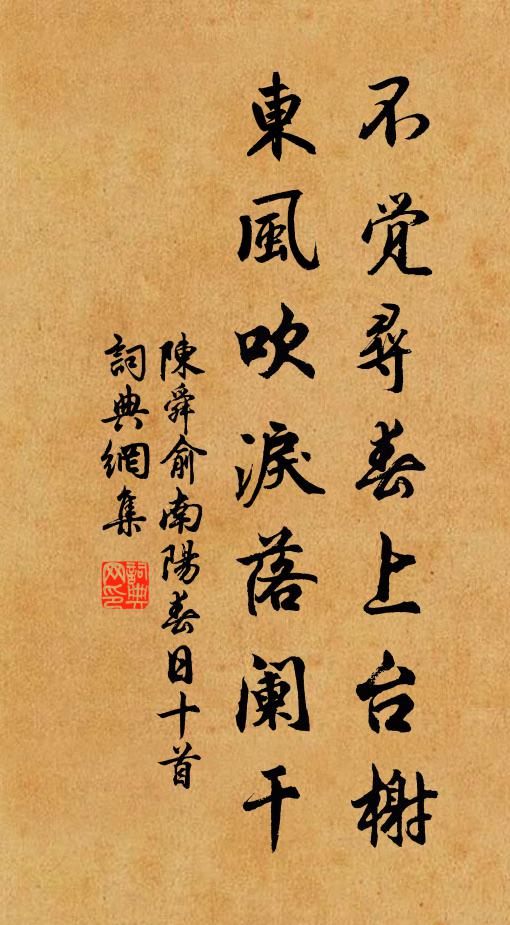 不觉尋春上台榭
東風吹淚落阑干
陳舜俞南陽春日十首
詞典網集
詞典网印